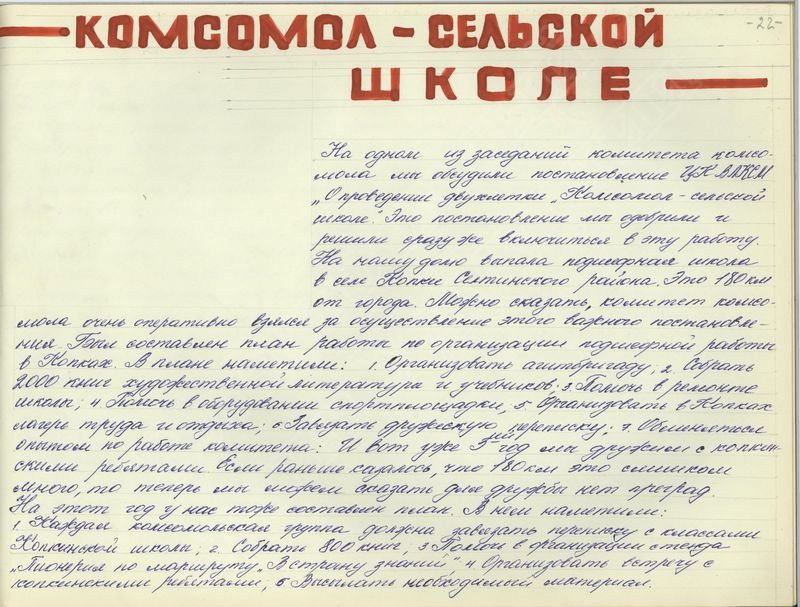 -22-
КОМСОМОЛ - СЕЛЬСКОЙ
ШКОЛЕ
На одном из заседаний комитета комсо-
мола мы обсудили постановление ЦК ВЛКСМ
„О проведении двухлетки „Комсомол - сельской
школе". Это постановление мы одобрили и
решили сразу же включиться в эту работу.
На нашу долю выпала подшефная школа
в селе Копки Селтинского района. Это 180 км
от города. Можно сказать, комитет комсо-
мола очень оперативно взялся за осуществление этого важного постановле-
ния. Был составлен план работы по организации подшефной работы
в Копках. В плане наметили: 1. Организовать агитбригаду; 2. Собрать
2000 книг художественной литературы и учебников; 3. Помочь в ремонте
школы; 4 Помочь в оборудовании спортплощадки, 5. Организовать в Копках
лагерь труда и отдыха; 6 Завязать дружескую переписку; 7. Обменяться
опытом по работе комитета: И вот уже 3ий год мы дружим с копкин-
скими ребятами. Если раньше казалось, что 180 км это слишком
много, то теперь мы можем сказать для дружбы нет преград
На этот год у нас тоже составлен план. В нем наметили:
1. Каждая комсомольская группа должна завязать переписку с классами
Копкинской школы; 2. Собрать 800 книг; 3 Помочь в организации стенда
„Пионерия по маршруту „В страну знаний" 4 Организовать встречу с
копкинскими ребятами; 5 Высылать необходимый материал.